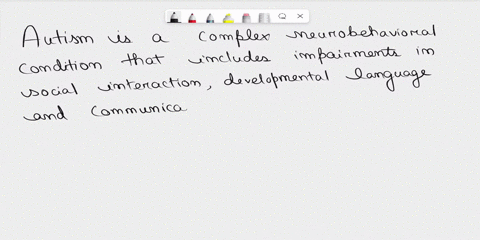 Autism is a complex neurobehavioral
condition that includes impairments in
social interaction, developmental language
and communica